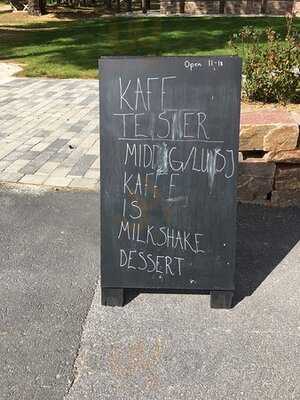 Open 11-18
KAFF
TEISNER
MIDDAG/LUNSJ
KAFFE
IS
MILKSHAKE
DESSERT